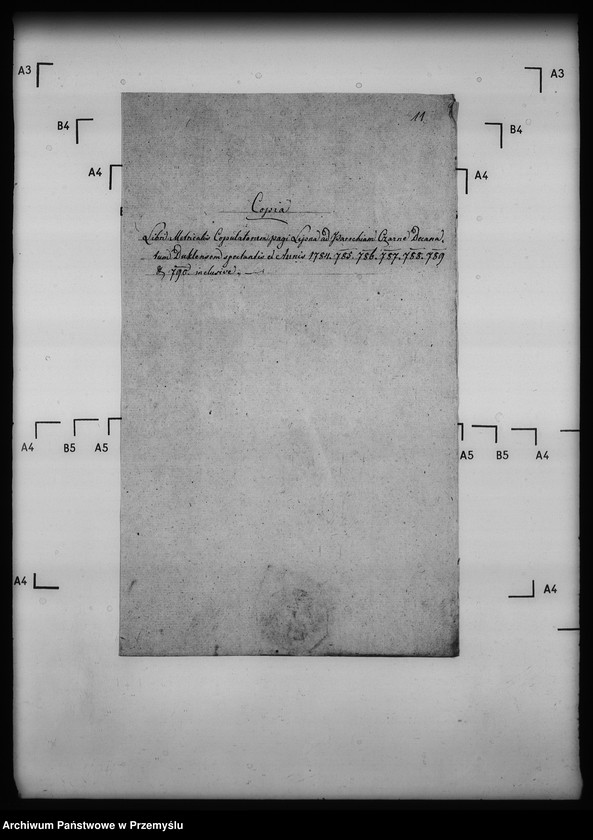 A3
A3
B4
B4
A4
A4
11
Copia
Libri Metricalis Copulatorum pagi Lipna ad Parochiam Czarne Decana,
tum Duklensem spectantis ex Annis 1784. 785. 786. 787. 788. 789
& 790 inclusive.
A4 B5 A5
A5 B5 A4
A4
A4
Archiwum Państwowe w Przemyślu